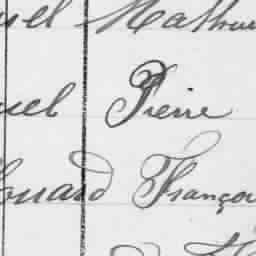 uel Mathur
uel Pierre
ouard Françoi